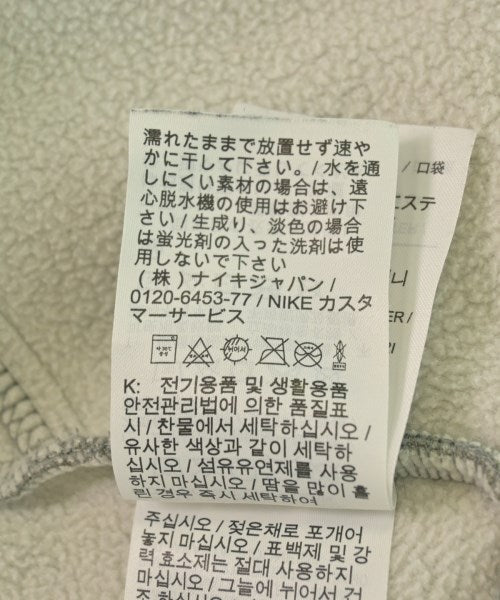 濡れたままで放置せず速や
かに干して下さい。/ 水を通
しにくい素材の場合は、遠
心脱水機の使用はお避け下
さい / 生成り、淡色の場合
は蛍光剤の入った洗剤は使
用しないで下さい
(株) ナイキジャパン /
0120-6453-77 / NIKE カスタ
マーサービス
K: 전기용품 및 생활용품
안전관리법에 의한 품질표
시 / 찬물에서 세탁하십시오 /
유사한 색상과 같이 세탁하
십시오 / 섬유유연제를 사용
하지 마십시오 / 땀을 많이 흘
린 경우 즉시 세탁하여
주십시오 / 젖은채로 포개어
놓지 마십시오 / 표백제 및 강
력 효소제는 절대 사용하지
마십시오 / 그늘에 뉘어서 건
/ 口袋
エステ
니
ER /